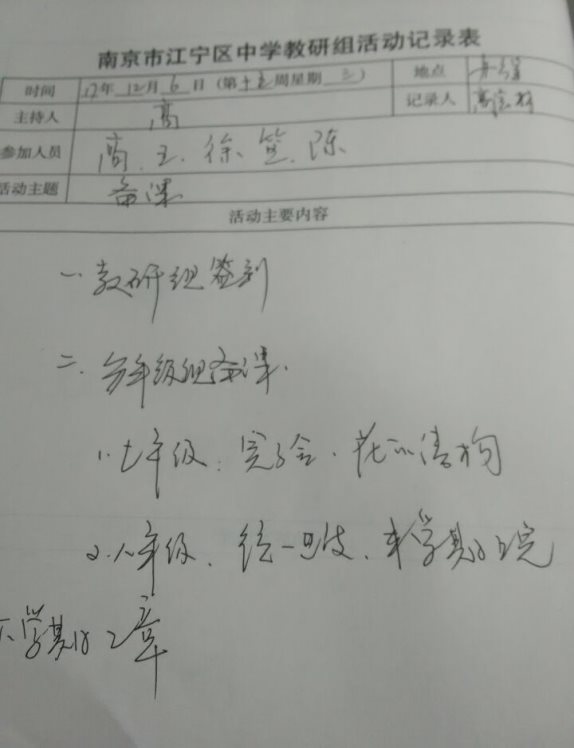 南京市江宁区中学教研组活动记录表
时间 17年12月6日（第十五周星期三） 地点
主持人 高 记录人 高
参加人员 高、王、徐、笪、陈
活动主题 备课
活动主要内容
一、教研组签到
二、分年级组备课.
1.七年级：完 花的结构
2.八年级、统一进度、本学期 上完
下学期的2章